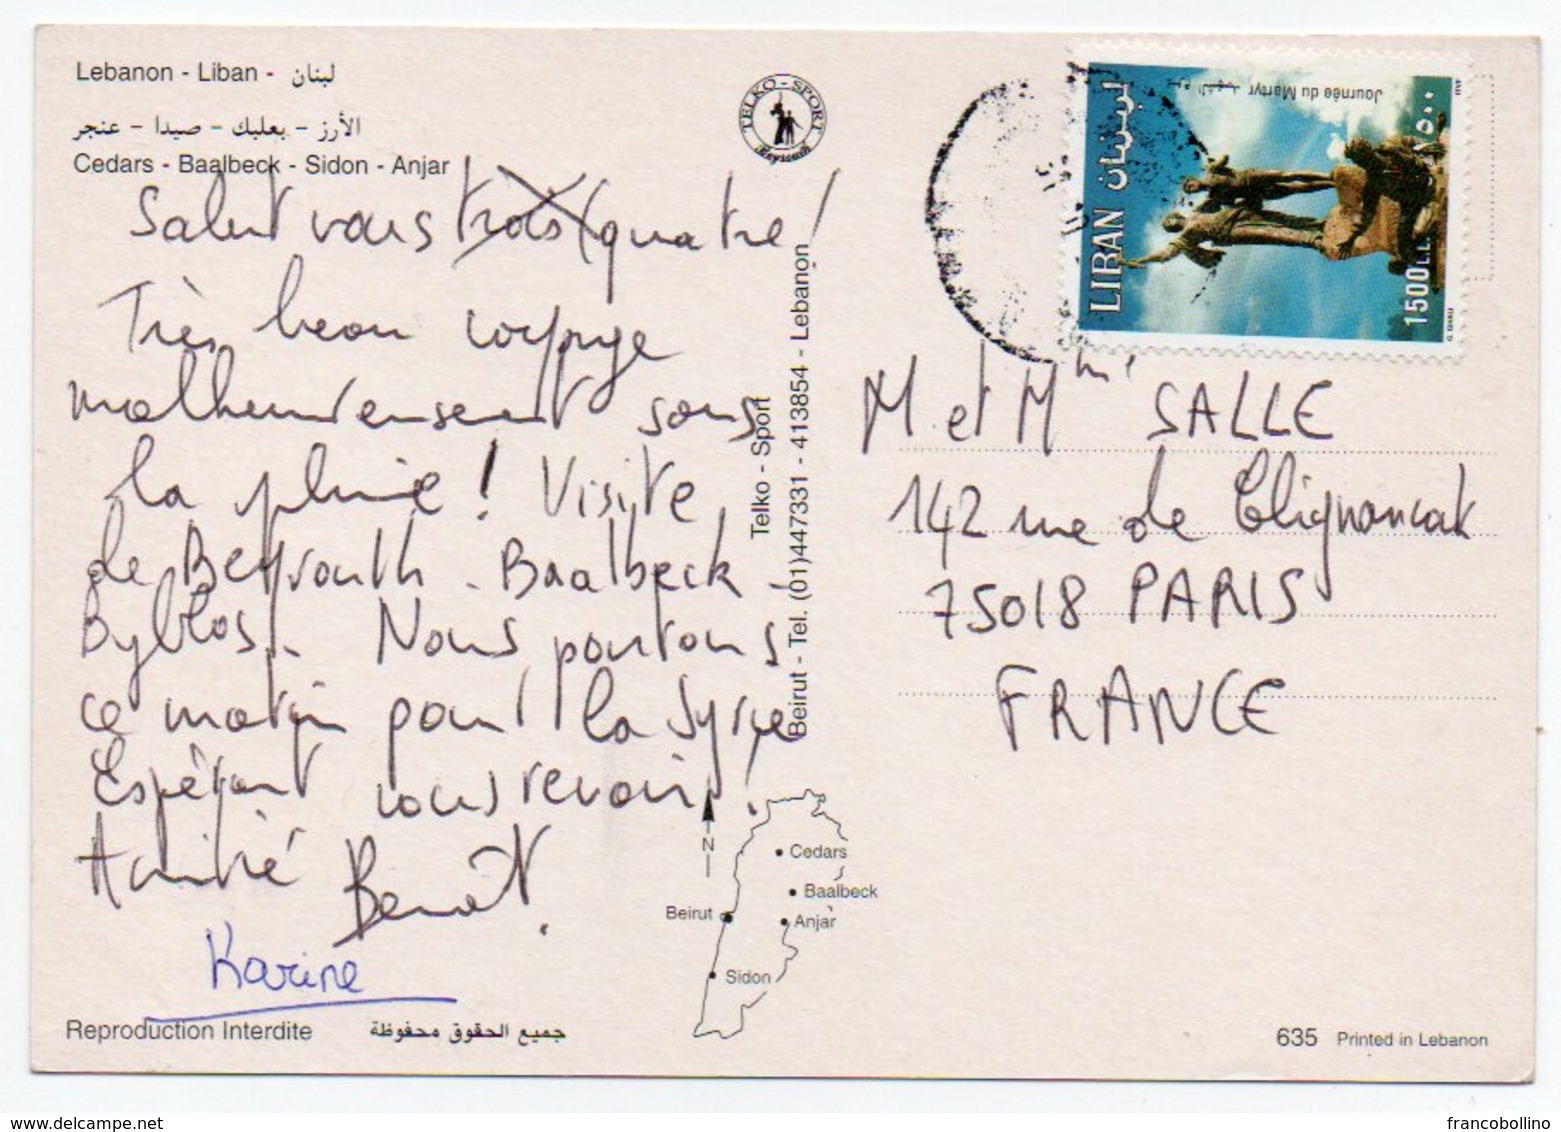 Lebanon - Liban - لبنان
الأرز - بعلبك - صيدا - عنجر
Cedars - Baalbeck - Sidon - Anjar
TELKO - SPORT
Beyrouth
Salut vous trois (quatre!
Très beau voyage
malheureusement sous
la pluie! Visite
de Beyrouth - Baalbeck -
Byblos. Nous partons
ce matin pour la Syrie
Espérant vous revoir!
Amitié Benoît.
Karine
Telko - Sport
Beirut - Tel. (01)447331 - 413854 - Lebanon
LIBAN لبنان
Journée du Martyr يوم الشهيد
1500 L.L. ١٥٠٠
M et Mm SALLE
142 rue de Clignancourt
75018 PARIS
FRANCE
N
Cedars
Baalbeck
Beirut
Anjar
Sidon
Reproduction Interdite جميع الحقوق محفوظة
635 Printed in Lebanon
francobollino